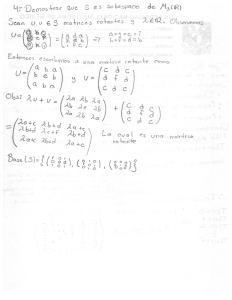 4.- Demostrar que S es subespacio de M₃(ℝ)
Sean u, v ∈ S matrices rotantes y λ∈ℝ. Observamos
a=g=c=i
b=f=d=h
Entonces escribamos a una matriz rotante como
U = (a b a / b e b / a b a) y V = (c d c / d f d / c d c)
Obs: λu + v = (λa λb λa / λb λe λb / λa λb λa) + (c d c / d f d / c d c)
= (λa+c λb+d λa+c / λb+d λe+f λb+d / λa+c λb+d λa+c) La cual es una matriz
rotante
Base(S) =